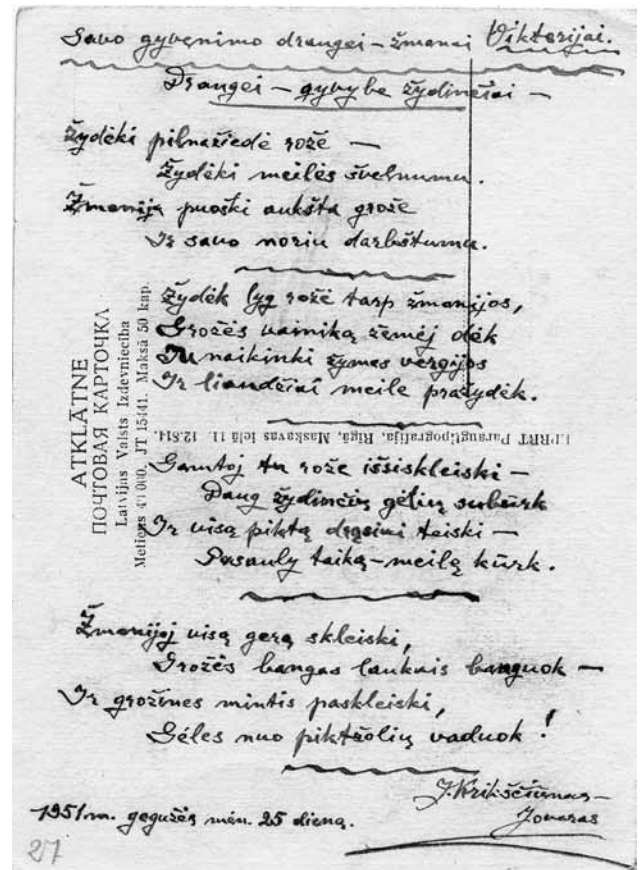 Savo gyvenimo draugei – žmonai Viktorijai.
Draugei – gyvybe žydinčiai –
Žydėki pilnažiedė rože –
Žydėki meilės švelnumu.
Žmoniją puoški aukšta grože
Ir savo noriu darbštumu.
Žydėk lyg rožė tarp žmonijos,
Grožės vainiką žemėj dėk
Tu naikinki žymes vergijos
Ir liaudžiai meile pražydėk.
Gamtoj tu rože išsiskleiski –
Daug žydinčių gėlių subūrk
Ir visą piktą drąsiai teiski –
Pasauly taiką – meilę kūrk.
Žmonijoj visą gerą skleiski,
Grožės bangas laukais banguok –
Ir grožines mintis paskleiski,
Gėles nuo piktžolių vaduok!
J. Krikščiūnas –
Jovaras
1951 m. gegužės mėn. 25 dieną.
27
ATKLĀTNE
ПОЧТОВАЯ КАРТОЧКА
Latvijas Valsts Izdevniecība
Metiens 40 000. JT 15441. Maksā 50 kap.
LPRRT Paraugtipografija, Rīgā, Maskavas ielā 11. 12.814.